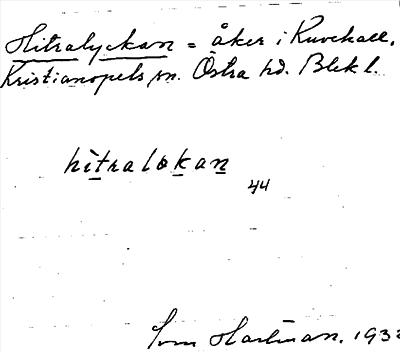 Hitralyckan = åker i Kuvehall,
Kristianopels sn. Östra hd. Blekl.
hìtraløkan
44
Hartman. 193